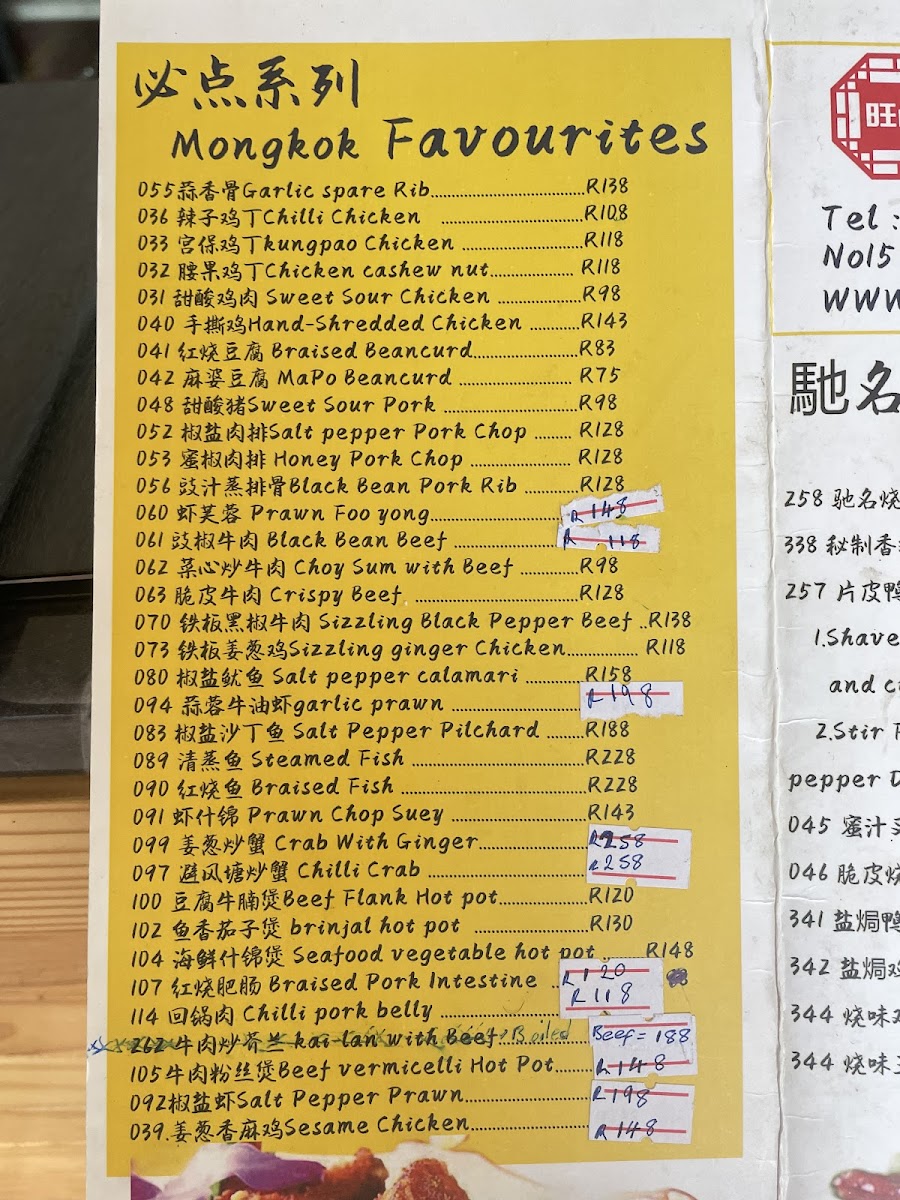 必点系列
Mongkok Favourites
055蒜香骨Garlic spare Rib..........R138
036 辣子鸡丁Chilli Chicken ..........R108
033 宫保鸡丁kungpao Chicken ..........R118
032 腰果鸡丁Chicken cashew nut.......... R118
031 甜酸鸡肉 Sweet Sour Chicken ..........R98
040 手撕鸡Hand-Shredded Chicken ..........R143
041 红烧豆腐 Braised Beancurd..........R83
042 麻婆豆腐 MaPo Beancurd .......... R75
048 甜酸猪Sweet Sour Pork ..........R98
052 椒盐肉排Salt pepper Pork Chop ....... R128
053 蜜椒肉排 Honey Pork Chop .......... R128
056 豉汁蒸排骨Black Bean Pork Rib ..........R128
060 虾芙蓉 Prawn Foo yong..........R 148
061 豉椒牛肉 Black Bean Beef ..........R 118
062 菜心炒牛肉 Choy Sum with Beef ..........R98
063 脆皮牛肉 Crispy Beef ..........R128
070 铁板黑椒牛肉 Sizzling Black Pepper Beef ..R138
073 铁板姜葱鸡Sizzling ginger Chicken.......... R118
080 椒盐鱿鱼 Salt pepper calamari ..........R158
094 蒜蓉牛油虾garlic prawn ..........R198
083 椒盐沙丁鱼 Salt Pepper Pilchard .......R188
089 清蒸鱼 Steamed Fish ..........R228
090 红烧鱼 Braised Fish ..........R228
091 虾什锦 Prawn Chop Suey ..........R143
099 姜葱炒蟹 Crab With Ginger..........R258
097 避风塘炒蟹 Chilli Crab ..........R258
100 豆腐牛腩煲Beef Flank Hot pot..........R120
102 鱼香茄子煲 brinjal hot pot ..........R130
104 海鲜什锦煲 Seafood vegetable hot pot .. R148
107 红烧肥肠 Braised Pork Intestine ..R120
114 回锅肉 Chilli pork belly ..........R118
262 牛肉炒芥兰 kai lan with Beef Boiled Beef = 188
105牛肉粉丝煲Beef vermicelli Hot Pot.......R148
092椒盐虾Salt Pepper Prawn..........R198
039.姜葱香麻鸡Sesame Chicken..........R148
旺
Tel :
No15
WWW
馳名
258 驰名烧
338 秘制香
257 片皮鸭
1.Shave
and c
2.Stir
pepper D
045 蜜汁
046 脆皮烧
341 盐焗鸭
342 盐焗鸡
344 烧味
344 烧味